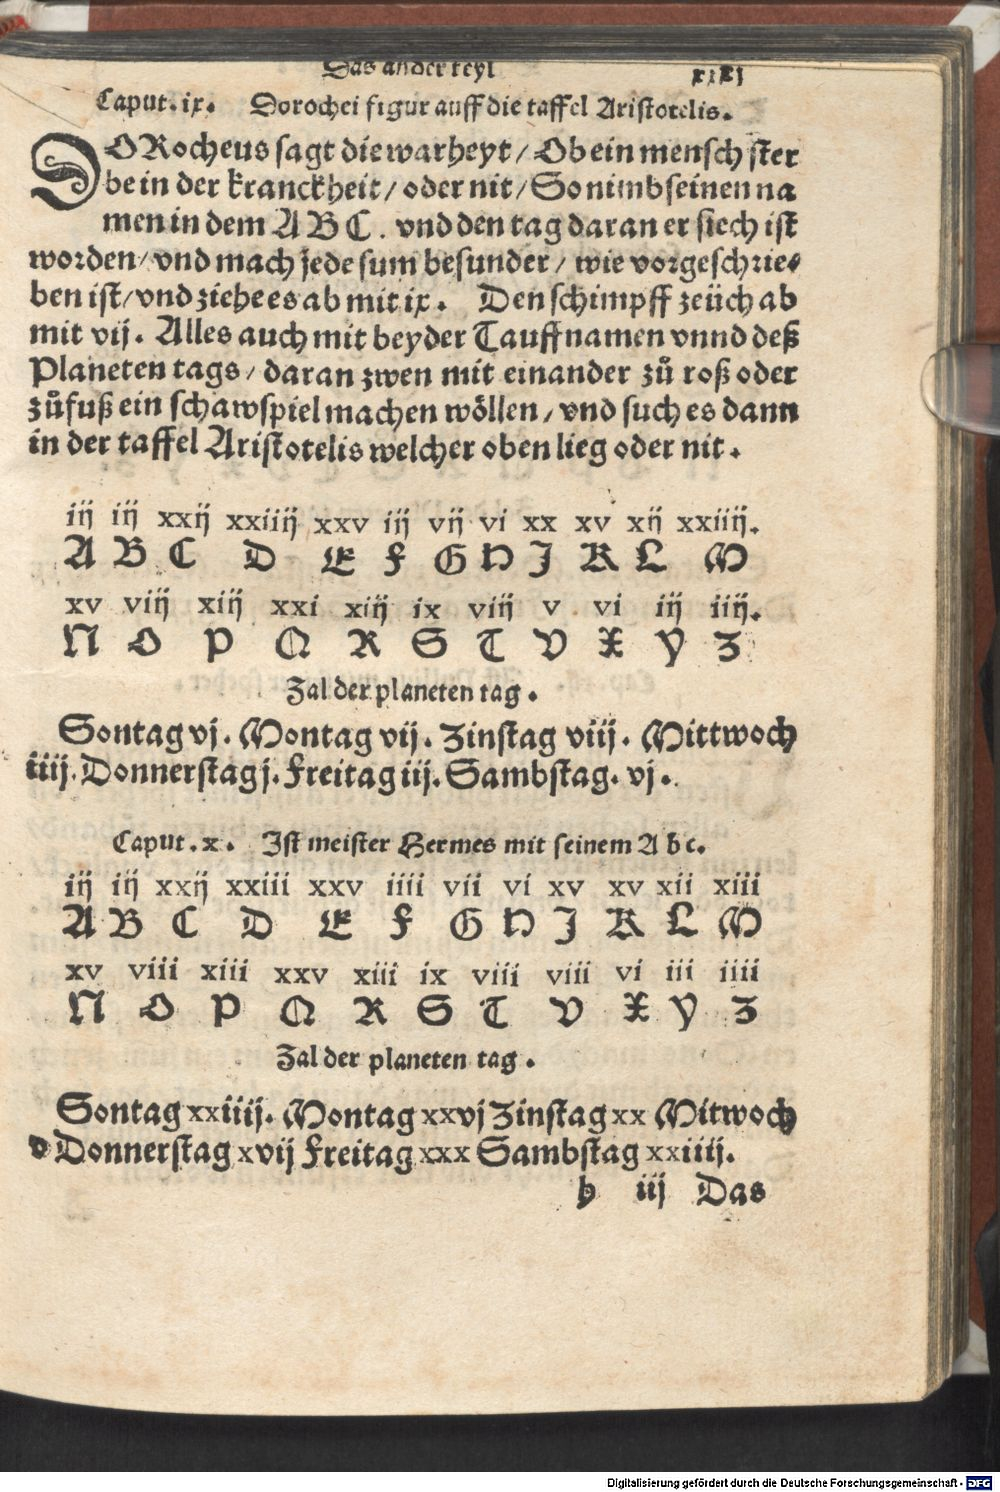 Das ander teyl
Caput. ix. Dorochei figur auff die taffel Aristotelis.
DORocheus sagt die warheyt / Ob ein mensch ster
be in der kranckheit / oder nit / So nimb seinen na
men in dem A B C. vnd den tag daran er siech ist
worden / vnd mach jede sum besunder / wie vorgeschrie⸗
ben ist / vnd ziehe es ab mit ix. Den schimpff zeüch ab
mit vij. Alles auch mit beyder Tauffnamen vnnd deß
Planeten tags / daran zwen mit einander zů roß oder
zů fuß ein schawspiel machen wöllen / vnd such es dann
in der taffel Aristotelis welcher oben lieg oder nit.
iij iij xxij xxiiij xxv iij vij vi xx xv xij xxiiij.
A B C D E F G H I K L M
xv viij xiij xxi xiij ix viij v vi iij iiij.
N O P Q R S T V X Y Z
Zal der planeten tag.
Sontag vj. Montag vij. Zinstag viij. Mittwoch
iiij. Donnerstag j. Freitag iij. Sambstag. vj.
Caput. x. Ist meister Hermes mit seinem A b c.
iij iij xxij xxiii xxv iiii vii vi xv xv xii xiii
A B C D E F G H I K L M
xv viii xiii xxv xiii ix viii viii vi iii iiii
N O P Q R S T V X Y Z
Zal der planeten tag.
Sontag xxiiij. Montag xxvj Zinstag xx Mitwoch
v Donnerstag xvij Freitag xxx Sambstag xxiiij.
b iij Das
Digitalisierung gefördert durch die Deutsche Forschungsgemeinschaft - DFG